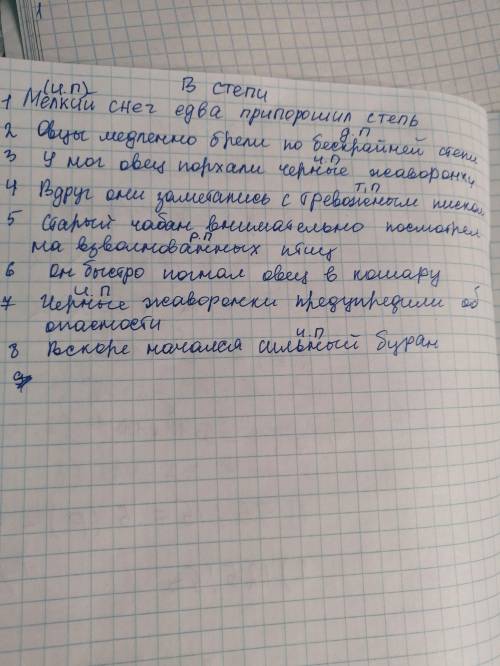 1
(и.п) В степи
1 Мелкий снег едва припорошил степь
д.п
2 Овцы медленно брели по бескрайней степи
и.п
3 У ног овец порхали черные жаворонки
т.п
4 Вдруг они заметались с тревожным писком
5 Старый чабан внимательно посмотрел
р.п
на взволнованных птиц
6 Он быстро погнал овец в кошару
и.п
7 Черные жаворонки предупредили об
опасности
и.п
8 Вскоре начался сильный буран